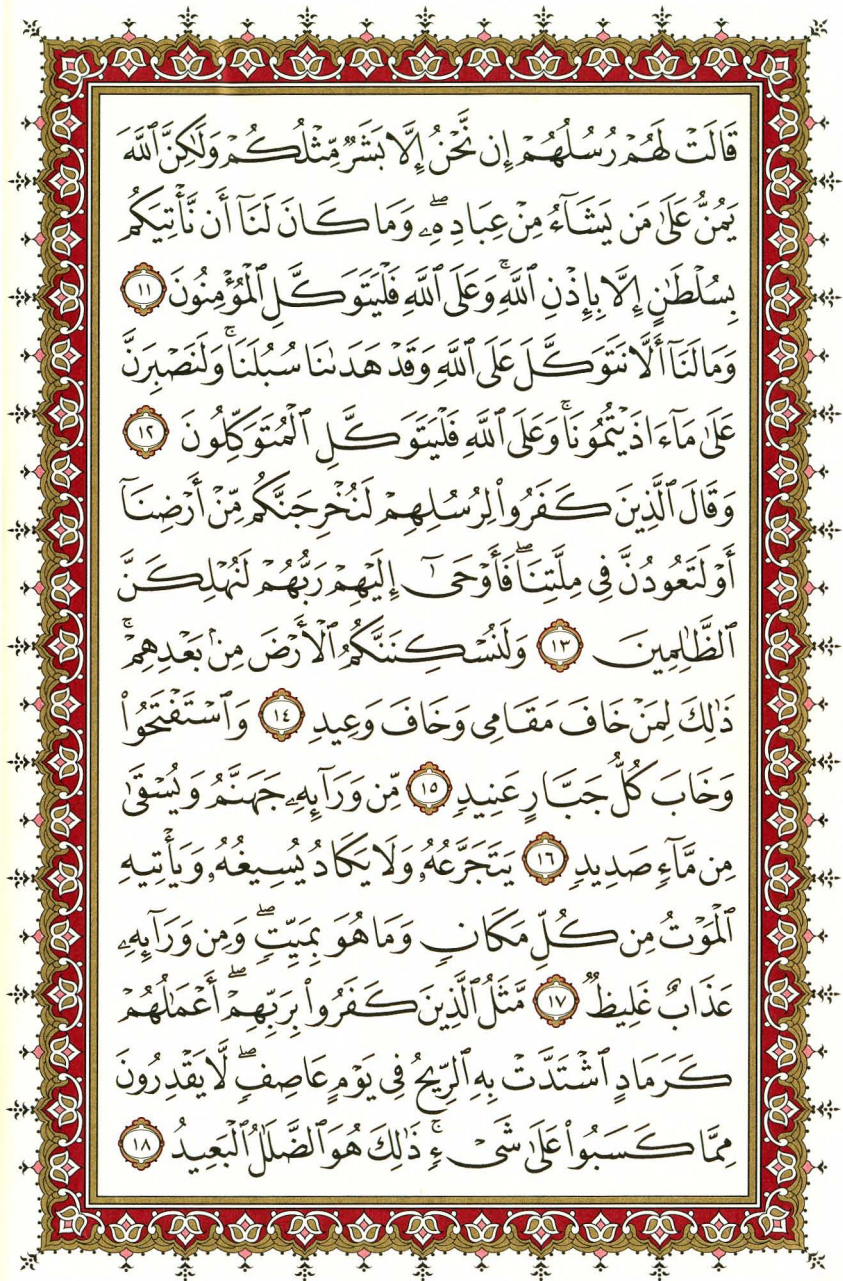 قَالَتْ لَهُمْ رُسُلُهُمْ إِن نَّحْنُ إِلَّا بَشَرٌ مِّثْلُكُمْ وَلَٰكِنَّ ٱللَّهَ
يَمُنُّ عَلَىٰ مَن يَشَآءُ مِنْ عِبَادِهِۦۖ وَمَا كَانَ لَنَآ أَن نَّأْتِيَكُم
بِسُلْطَٰنٍ إِلَّا بِإِذْنِ ٱللَّهِۚ وَعَلَى ٱللَّهِ فَلْيَتَوَكَّلِ ٱلْمُؤْمِنُونَ ١١
وَمَا لَنَآ أَلَّا نَتَوَكَّلَ عَلَى ٱللَّهِ وَقَدْ هَدَىٰنَا سُبُلَنَاۚ وَلَنَصْبِرَنَّ
عَلَىٰ مَآ ءَاذَيْتُمُونَاۚ وَعَلَى ٱللَّهِ فَلْيَتَوَكَّلِ ٱلْمُتَوَكِّلُونَ ١٢
وَقَالَ ٱلَّذِينَ كَفَرُوا۟ لِرُسُلِهِمْ لَنُخْرِجَنَّكُم مِّنْ أَرْضِنَآ
أَوْ لَتَعُودُنَّ فِى مِلَّتِنَاۖ فَأَوْحَىٰٓ إِلَيْهِمْ رَبُّهُمْ لَنُهْلِكَنَّ
ٱلظَّٰلِمِينَ ١٣ وَلَنُسْكِنَنَّكُمُ ٱلْأَرْضَ مِنۢ بَعْدِهِمْۚ
ذَٰلِكَ لِمَنْ خَافَ مَقَامِى وَخَافَ وَعِيدِ ١٤ وَٱسْتَفْتَحُوا۟
وَخَابَ كُلُّ جَبَّارٍ عَنِيدٍ ١٥ مِّن وَرَآئِهِۦ جَهَنَّمُ وَيُسْقَىٰ
مِن مَّآءٍ صَدِيدٍ ١٦ يَتَجَرَّعُهُۥ وَلَا يَكَادُ يُسِيغُهُۥ وَيَأْتِيهِ
ٱلْمَوْتُ مِن كُلِّ مَكَانٍ وَمَا هُوَ بِمَيِّتٍۖ وَمِن وَرَآئِهِۦ
عَذَابٌ غَلِيظٌ ١٧ مَّثَلُ ٱلَّذِينَ كَفَرُوا۟ بِرَبِّهِمْۖ أَعْمَٰلُهُمْ
كَرَمَادٍ ٱشْتَدَّتْ بِهِ ٱلرِّيحُ فِى يَوْمٍ عَاصِفٍۖ لَّا يَقْدِرُونَ
مِمَّا كَسَبُوا۟ عَلَىٰ شَىْءٍۚ ذَٰلِكَ هُوَ ٱلضَّلَٰلُ ٱلْبَعِيدُ ١٨